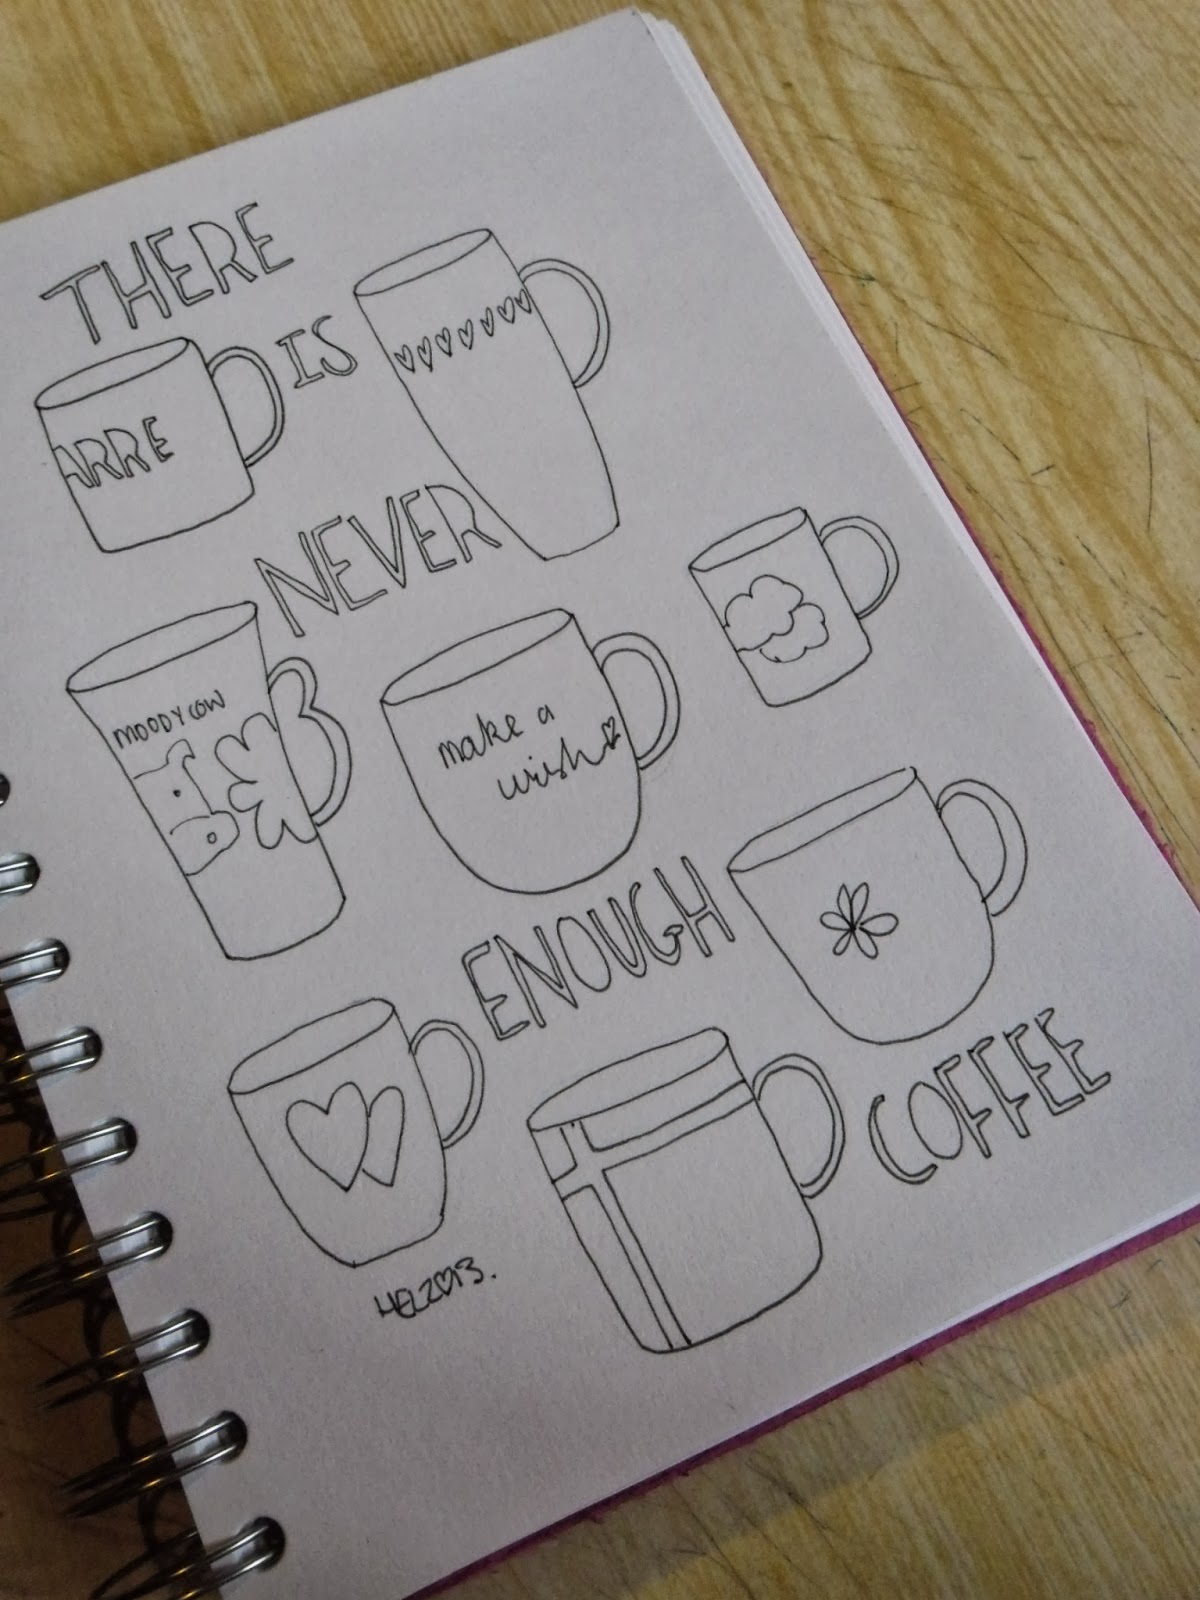 THERE
IS
ARRE
NEVER
MOODY COW
make a
wish
ENOUGH
COFFEE
HEL2013.